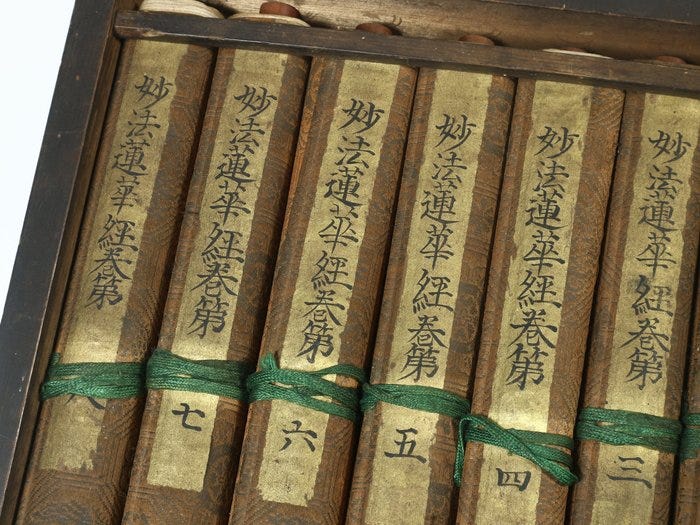 妙法蓮華經卷第三
妙法蓮華經卷第四
妙法蓮華經卷第五
妙法蓮華經卷第六
妙法蓮華經卷第七
妙法蓮華經卷第八